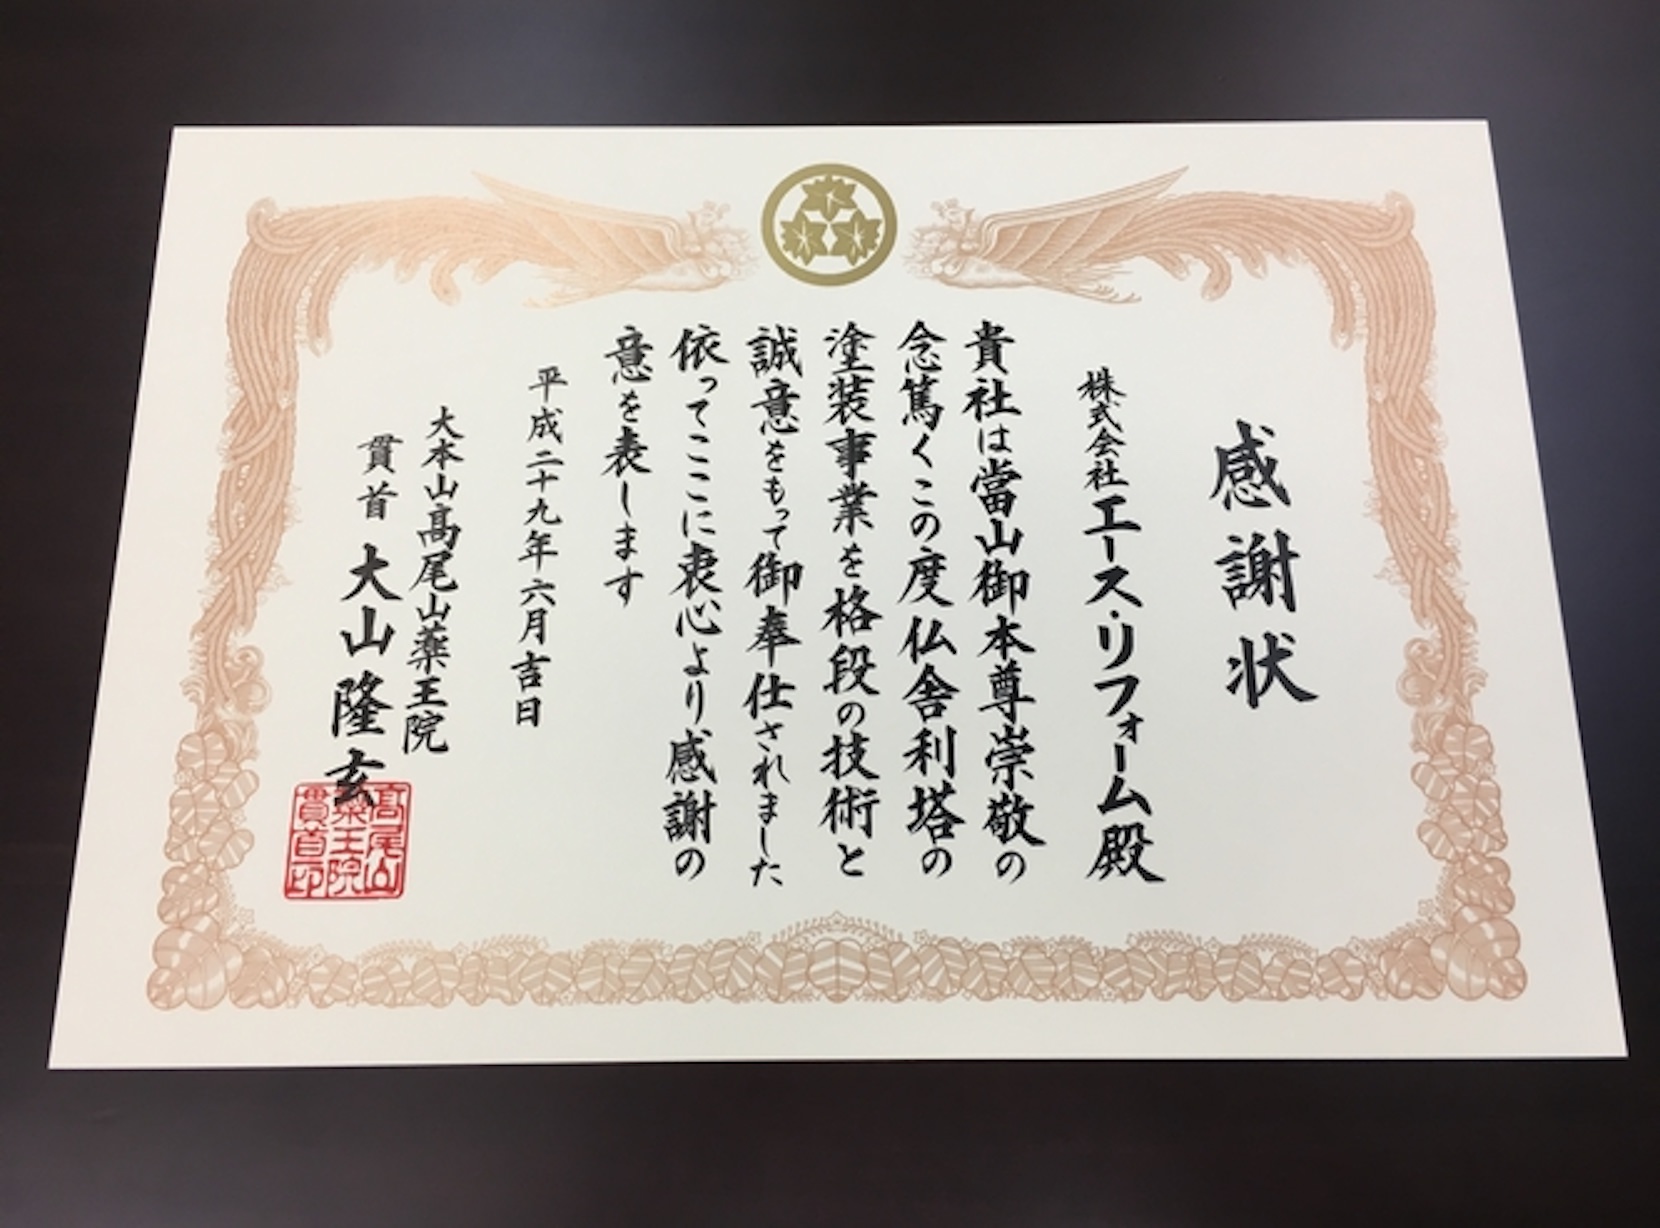 感謝状
株式会社エース・リフォーム殿
貴社は當山御本尊崇敬の
念篤くこの度仏舎利塔の
塗装事業を格段の技術と
誠意をもって御奉仕されました
依ってここに衷心より感謝の
意を表します
平成二十九年六月吉日
大本山髙尾山薬王院
貫首 大山隆玄
髙尾山
薬王院
貫首印